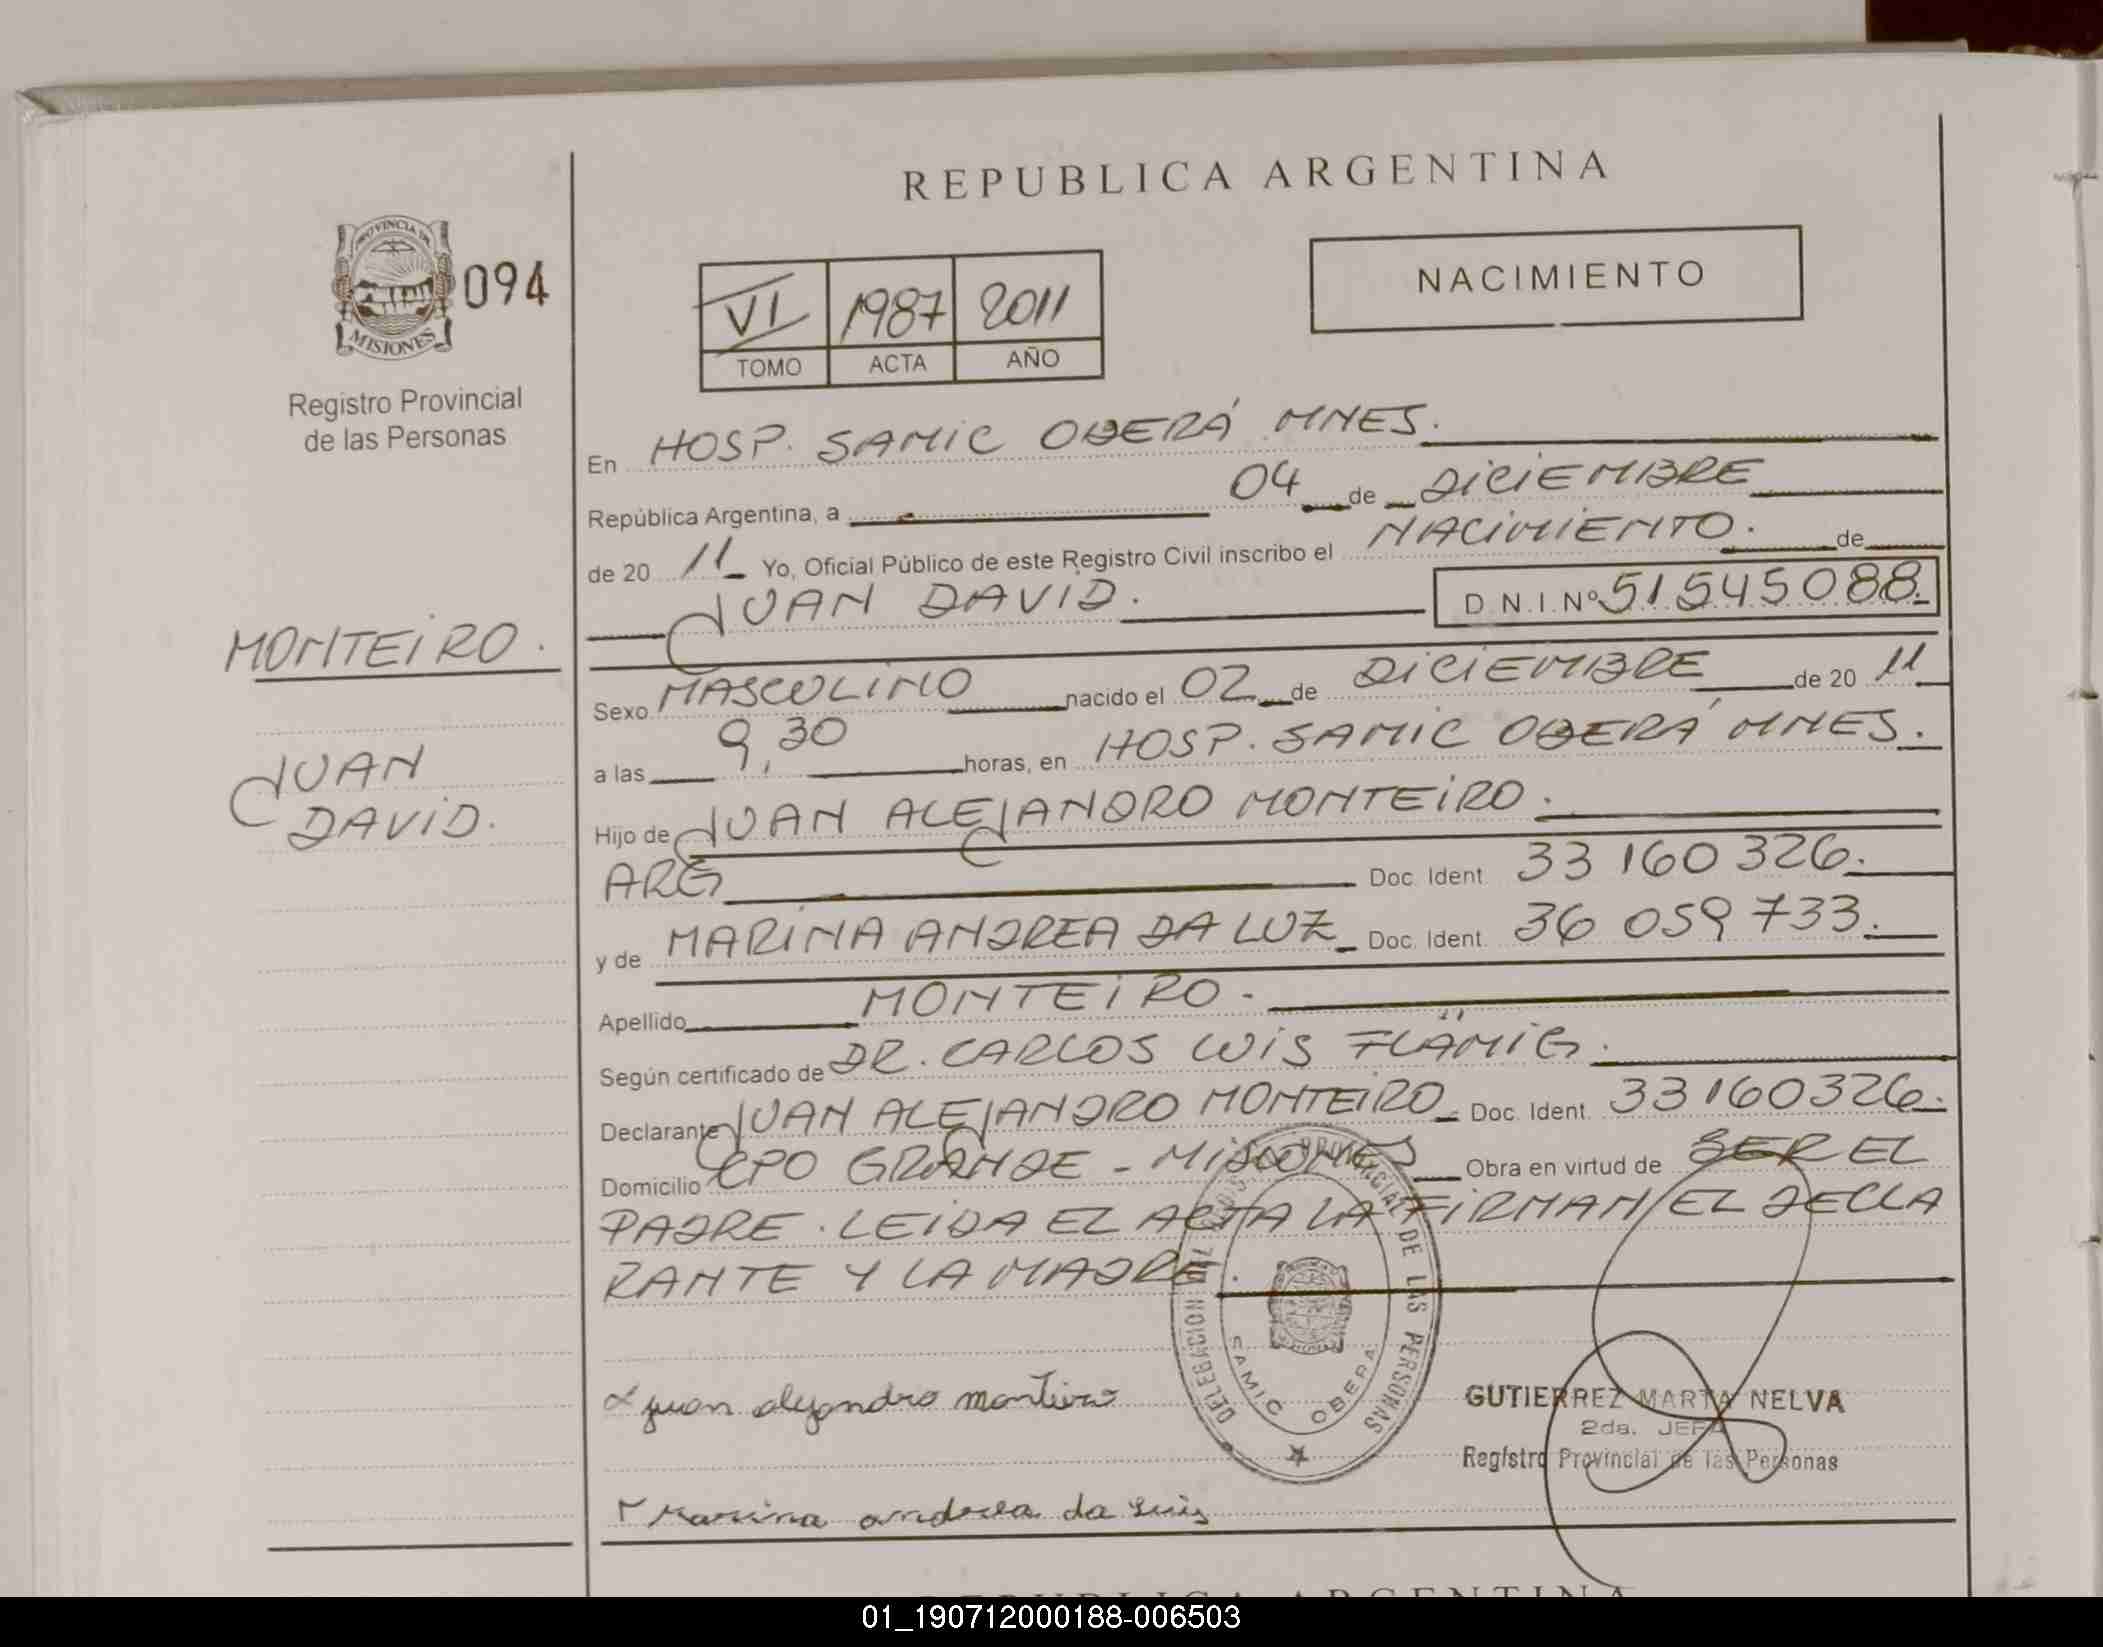 REPUBLICA ARGENTINA
PROVINCIA DE
MISIONES
094
Registro Provincial
de las Personas
VI 1987 2011
TOMO ACTA AÑO
NACIMIENTO
En HOSP. SAMIC OBERÁ MNES.
República Argentina, a 04 de DICIEMBRE
de 20 11 Yo, Oficial Público de este Registro Civil inscribo el NACIMIENTO. de
JUAN DAVID. D.N.I. Nº 51545088.
MONTEIRO.
JUAN
DAVID.
Sexo MASCULINO nacido el 02 de DICIEMBRE de 20 11
a las 9,30 horas, en HOSP. SAMIC OBERÁ MNES.
Hijo de JUAN ALEJANDRO MONTEIRO.
ARG Doc. Ident. 33 160 326.
y de MARINA ANDREA DA LUZ Doc. Ident. 36 059 733.
Apellido MONTEIRO.
Según certificado de DR. CARLOS LUIS FLÄMIG.
Declarante JUAN ALEJANDRO MONTEIRO Doc. Ident. 33160326.
Domicilio CPO GRANDE - MISIONES Obra en virtud de SER EL
PADRE. LEIDA EL ACTA LA FIRMAN EL DECLA
RANTE Y LA MADRE.
DELEGACION DEL PROVINCIAL DE LAS PERSONAS
SAMIC OBERA
juan alejandro monteiro
GUTIERREZ MARTA NELVA
2da. JEFA
Registro Provincial de las Personas
Marina andrea da luz
REPUBLICA ARGENTINA
01_190712000188-006503